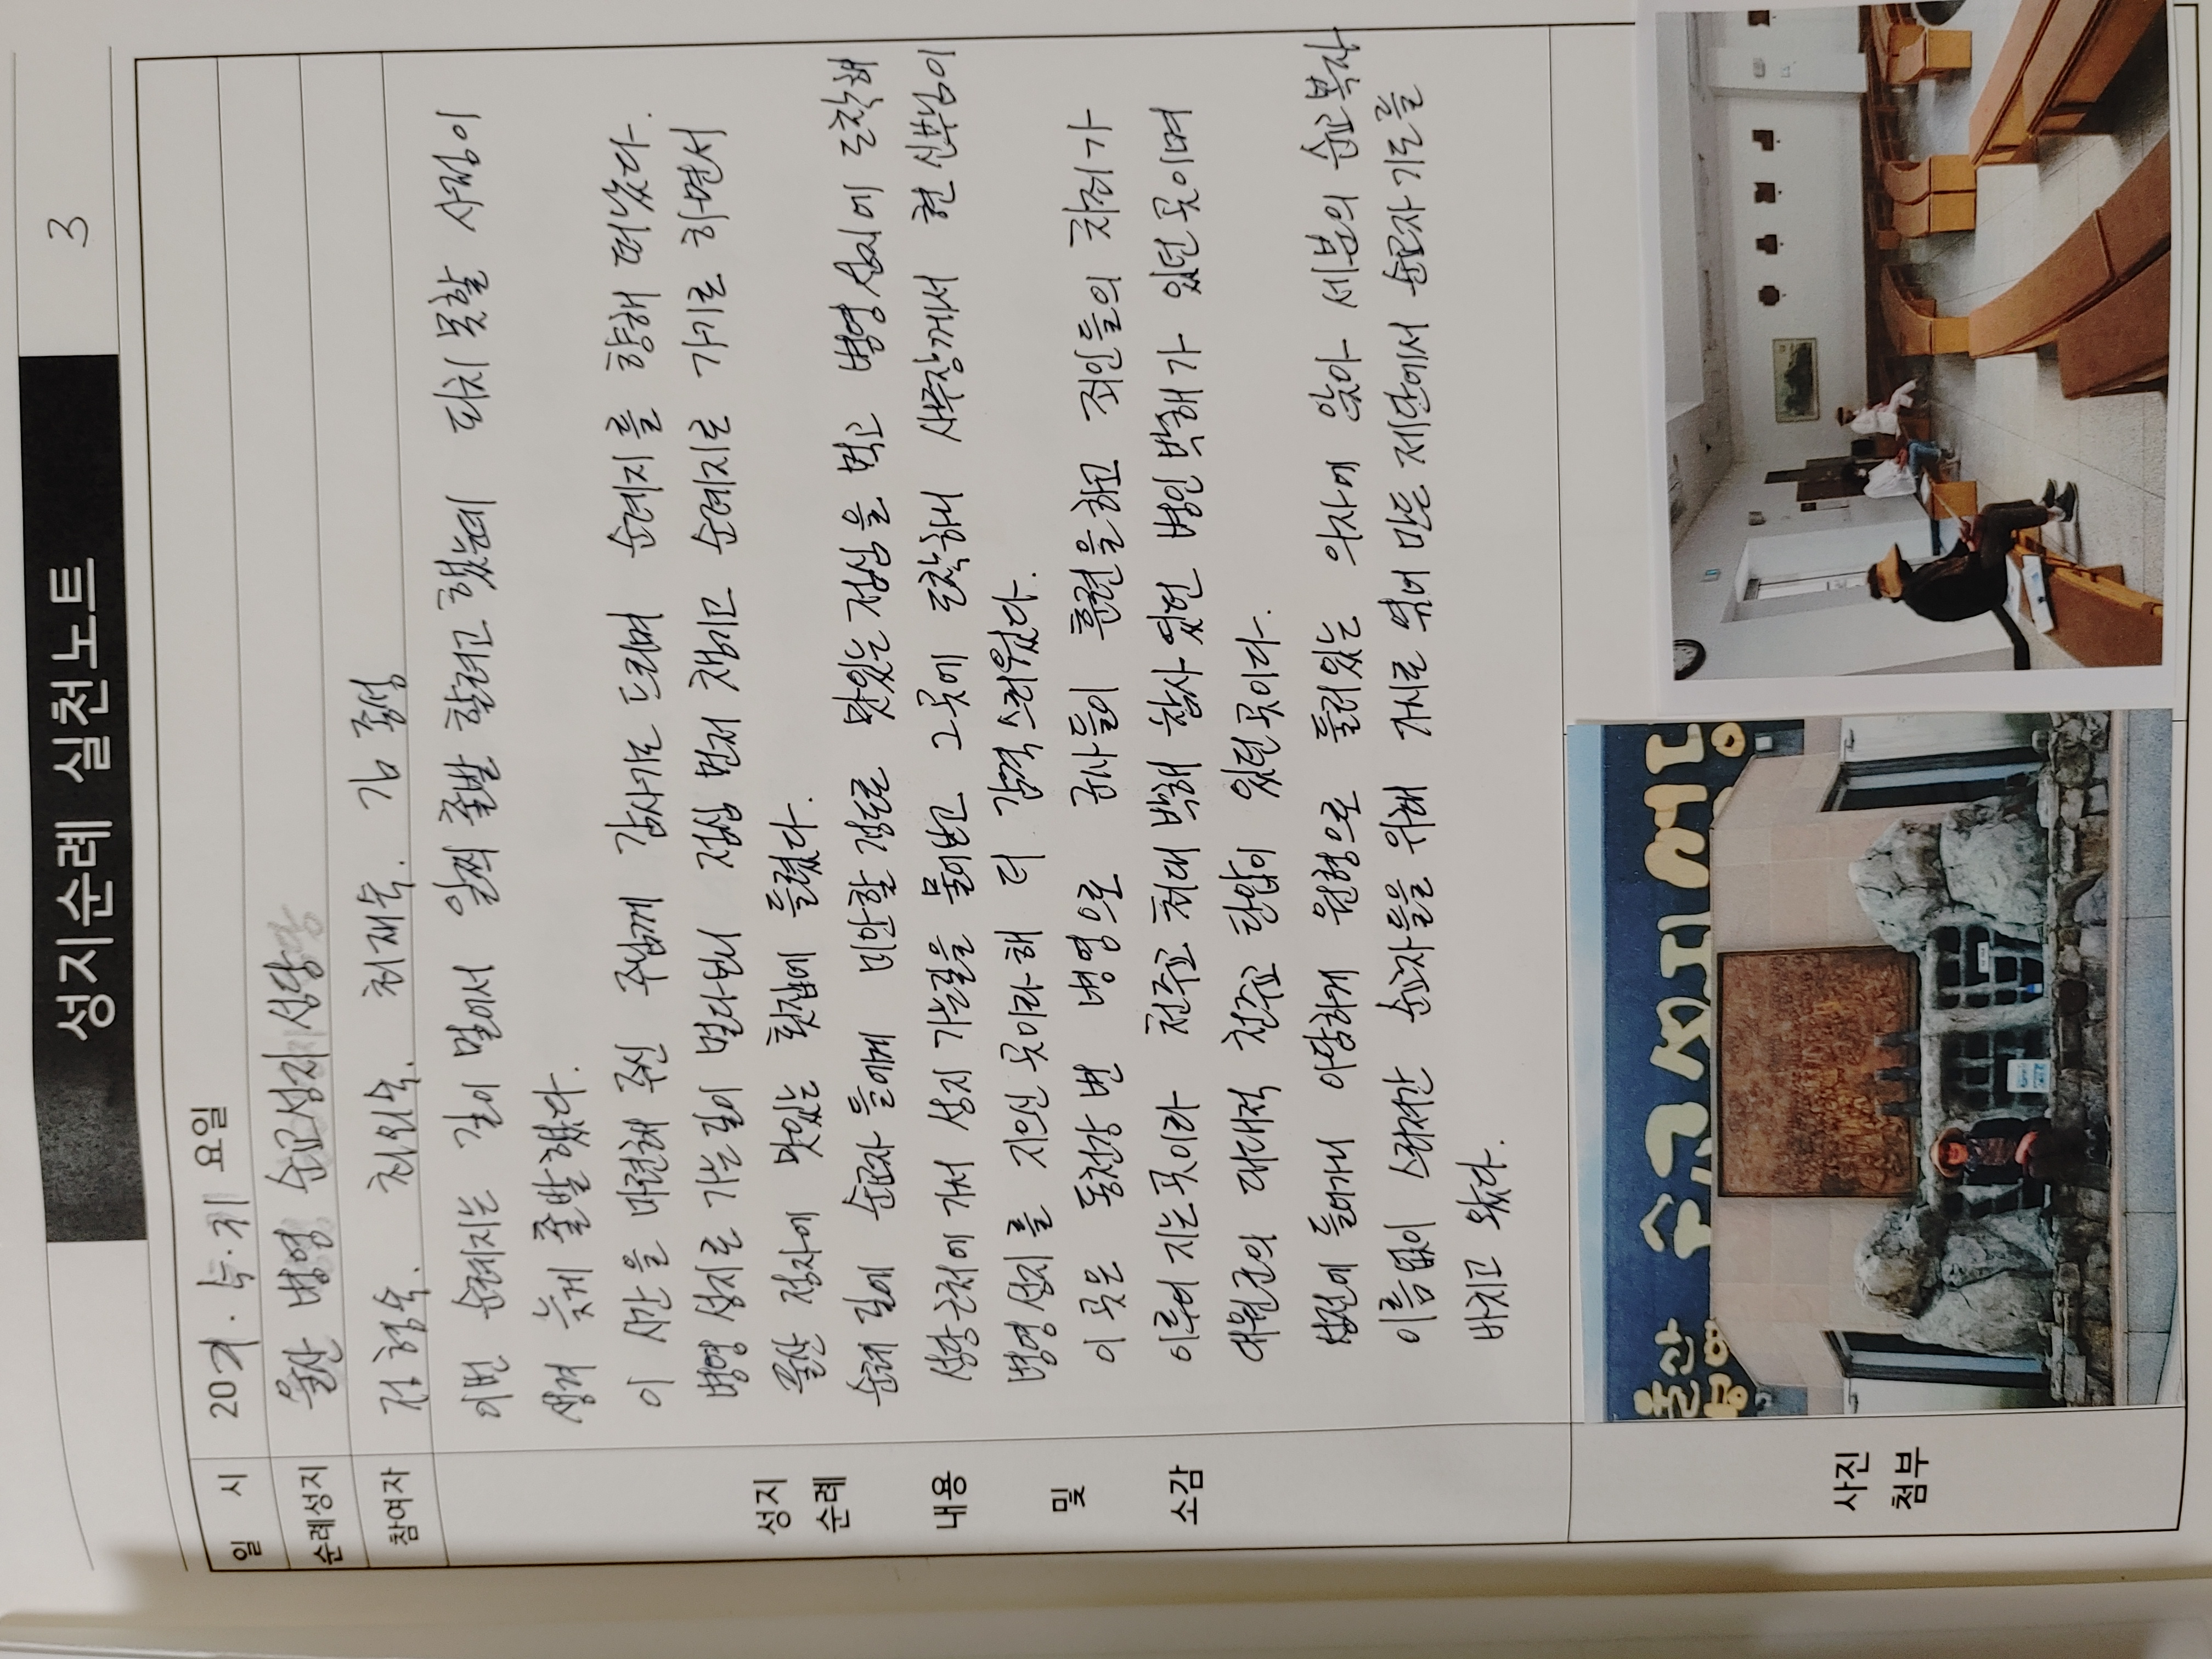 성지순례 실천노트
3
일 시
2021. 5. 21 요일
순례성지
울산 병영 순교성지 성당
참여자
정형숙. 최외숙. 최재숙. 김종성
성지
순례
내용
및
소감
이번 순례지는 길이 멀어서 일찍 출발 할려고 했는데 피치 못할 사정이
생겨 늦게 출발했다.
이 시간을 마련해 주신 주님께 감사기도 드리며 순례지를 향해 떠났다.
병영 성지로 가는길이 멀다보니 점심 먼저 챙기고 순례지로 가기로 하면서
울산 정자에 맛있는 횟집에 들렸다.
순례 길에 순교자 들에게 미안할 정도로 맛있는 점심을 먹고 병영성지에 도착해
성당근처에 가서 성지 가는길을 물어보고 그곳에 도착하니 사무장께서 현 신부님이
병영성지를 지으신 곳이라해 더 감격스러웠다.
이 곳은 동천강 변 병영으로 군사들이 훈련을하고 죄인들의 처형가
이루어 지는곳이라 천주교 최대 박해 참사 였던 병인박해가 있던곳이며
대원군의 대대적 천주교 탄압이 있던곳이다.
성전에 들어가니 아담하게 원형으로 둘러있는 의자에 앉아 세분의 순교복자
이름없이 스러져간 순교자들을 위해 가시로 엮어 만든 제단에서 순교자기도를
바치고 왔다.
사진
첨부
울산 병영 순교성지성당